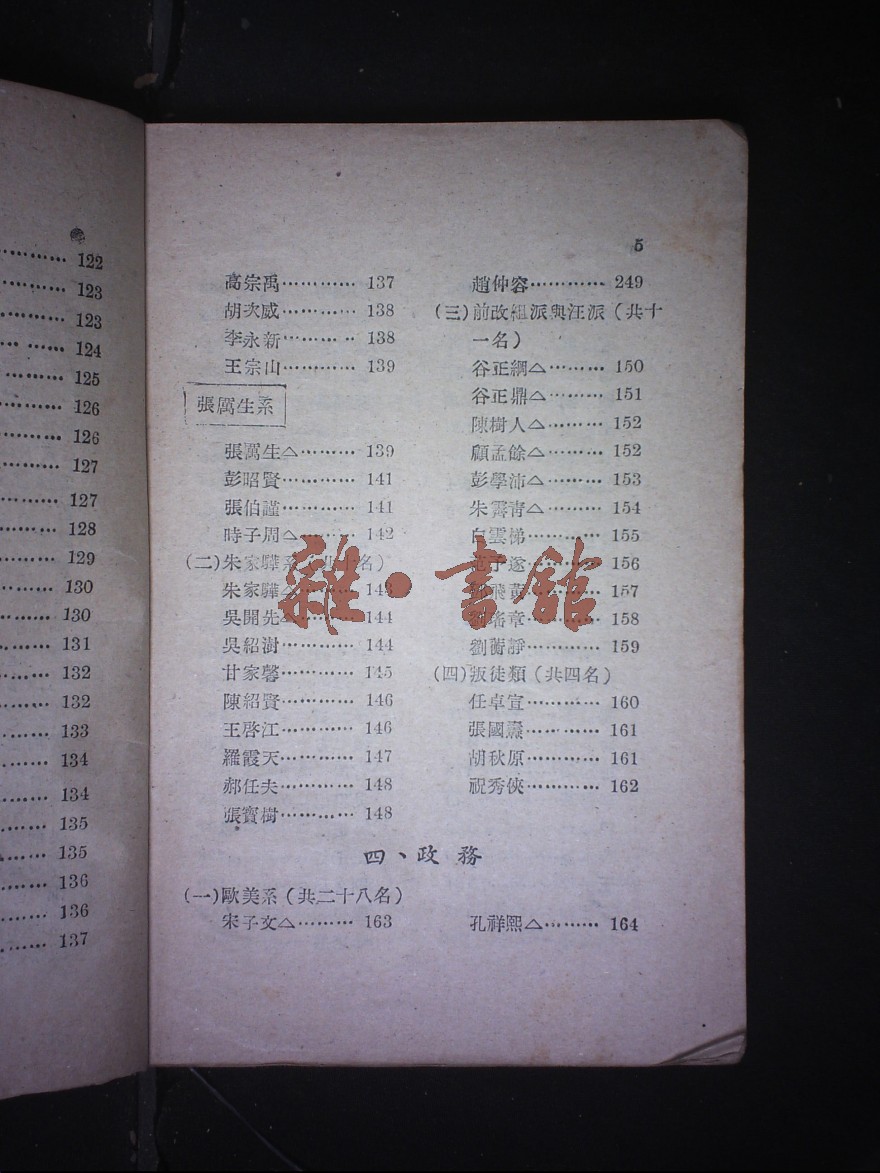 122
123
123
124
125
126
126
127
127
128
129
130
130
131
132
132
133
134
134
135
135
136
136
137
5
高宗禹………… 137
胡次威………… 138
李永新………… 138
王宗山………… 139
張厲生系
張厲生△……… 139
彭昭賢………… 141
張伯謹………… 141
時子周△……… 142
(二)朱家驊系(共十名)
朱家驊△……… 143
吳開先△……… 144
吳紹澍………… 144
甘家馨………… 145
陳紹賢………… 146
王啓江………… 146
羅霞天………… 147
郝任夫………… 148
張寶樹………… 148
趙仲容………… 249
(三)前改組派與汪派(共十
一名)
谷正綱△……… 150
谷正鼎△……… 151
陳樹人△……… 152
顧孟餘△……… 152
彭學沛△……… 153
朱霽青△……… 154
白雲梯………… 155
范予遂………… 156
飛黃………… 157
章………… 158
劉蘅靜………… 159
(四)叛徒類(共四名)
任卓宣………… 160
張國燾………… 161
胡秋原………… 161
祝秀俠………… 162
四、政務
(一)歐美系(共二十八名)
宋子文△……… 163
孔祥熙△……… 164
雜·書館